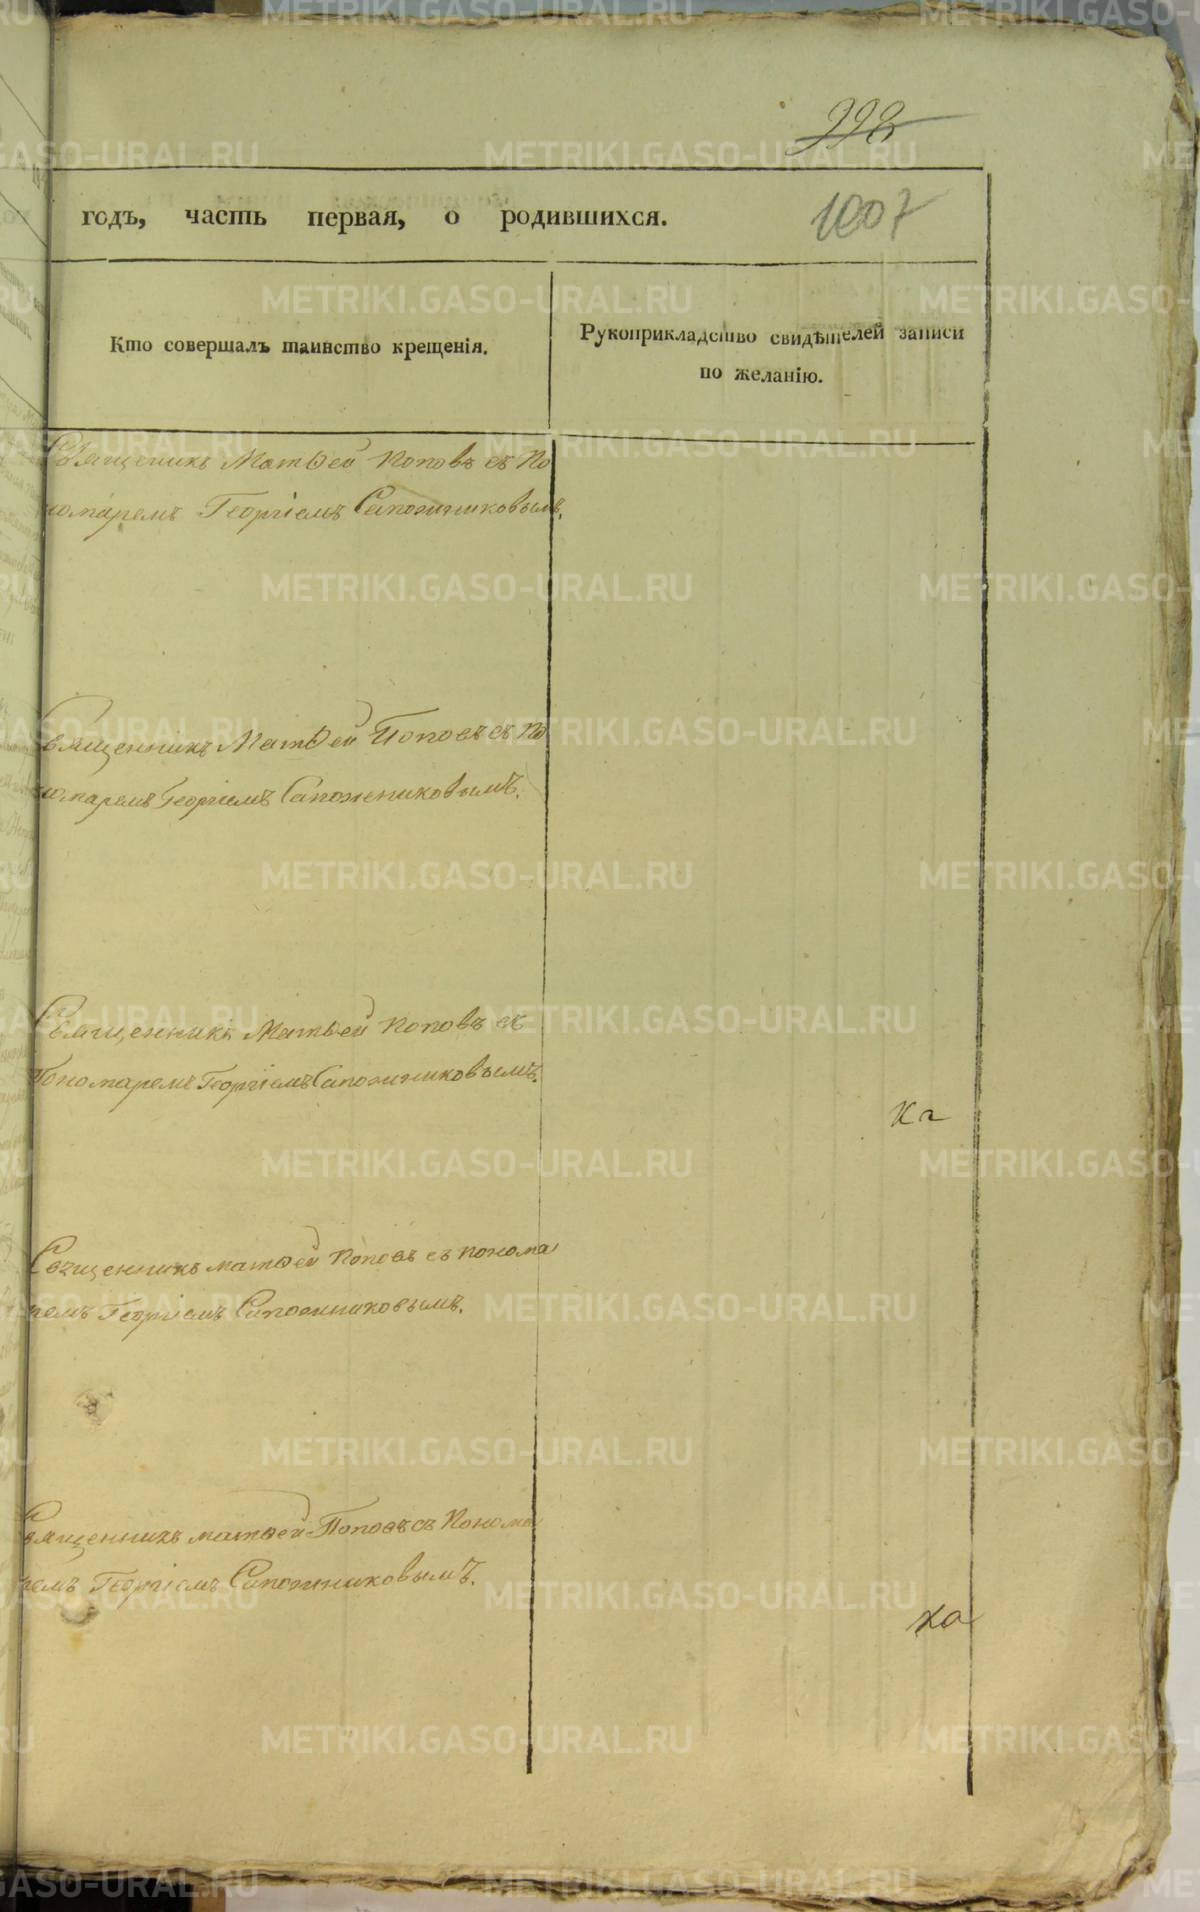 998
годъ, часть первая, о родившихся.
1007
Кто совершалъ таинство крещенія.
Рукоприкладство свидѣтелей записи
по желанію.
Священникъ Матѳей Поповъ съ По
номаремъ Георгіемъ Сапожниковымъ.
Священникъ Матѳей Поповъ съ По
номаремъ Георгіемъ Сапожниковымъ.
Священникъ Матѳей Поповъ съ
Пономаремъ Георгіемъ Сапожниковымъ.
Ка
Священникъ Матѳей Поповъ съ понома
ремъ Георгіемъ Сапожниковымъ.
Священникъ Матѳей Поповъ съ Понома
ремъ Георгіемъ Сапожниковымъ.
ка
METRIKI.GASO-URAL.RU